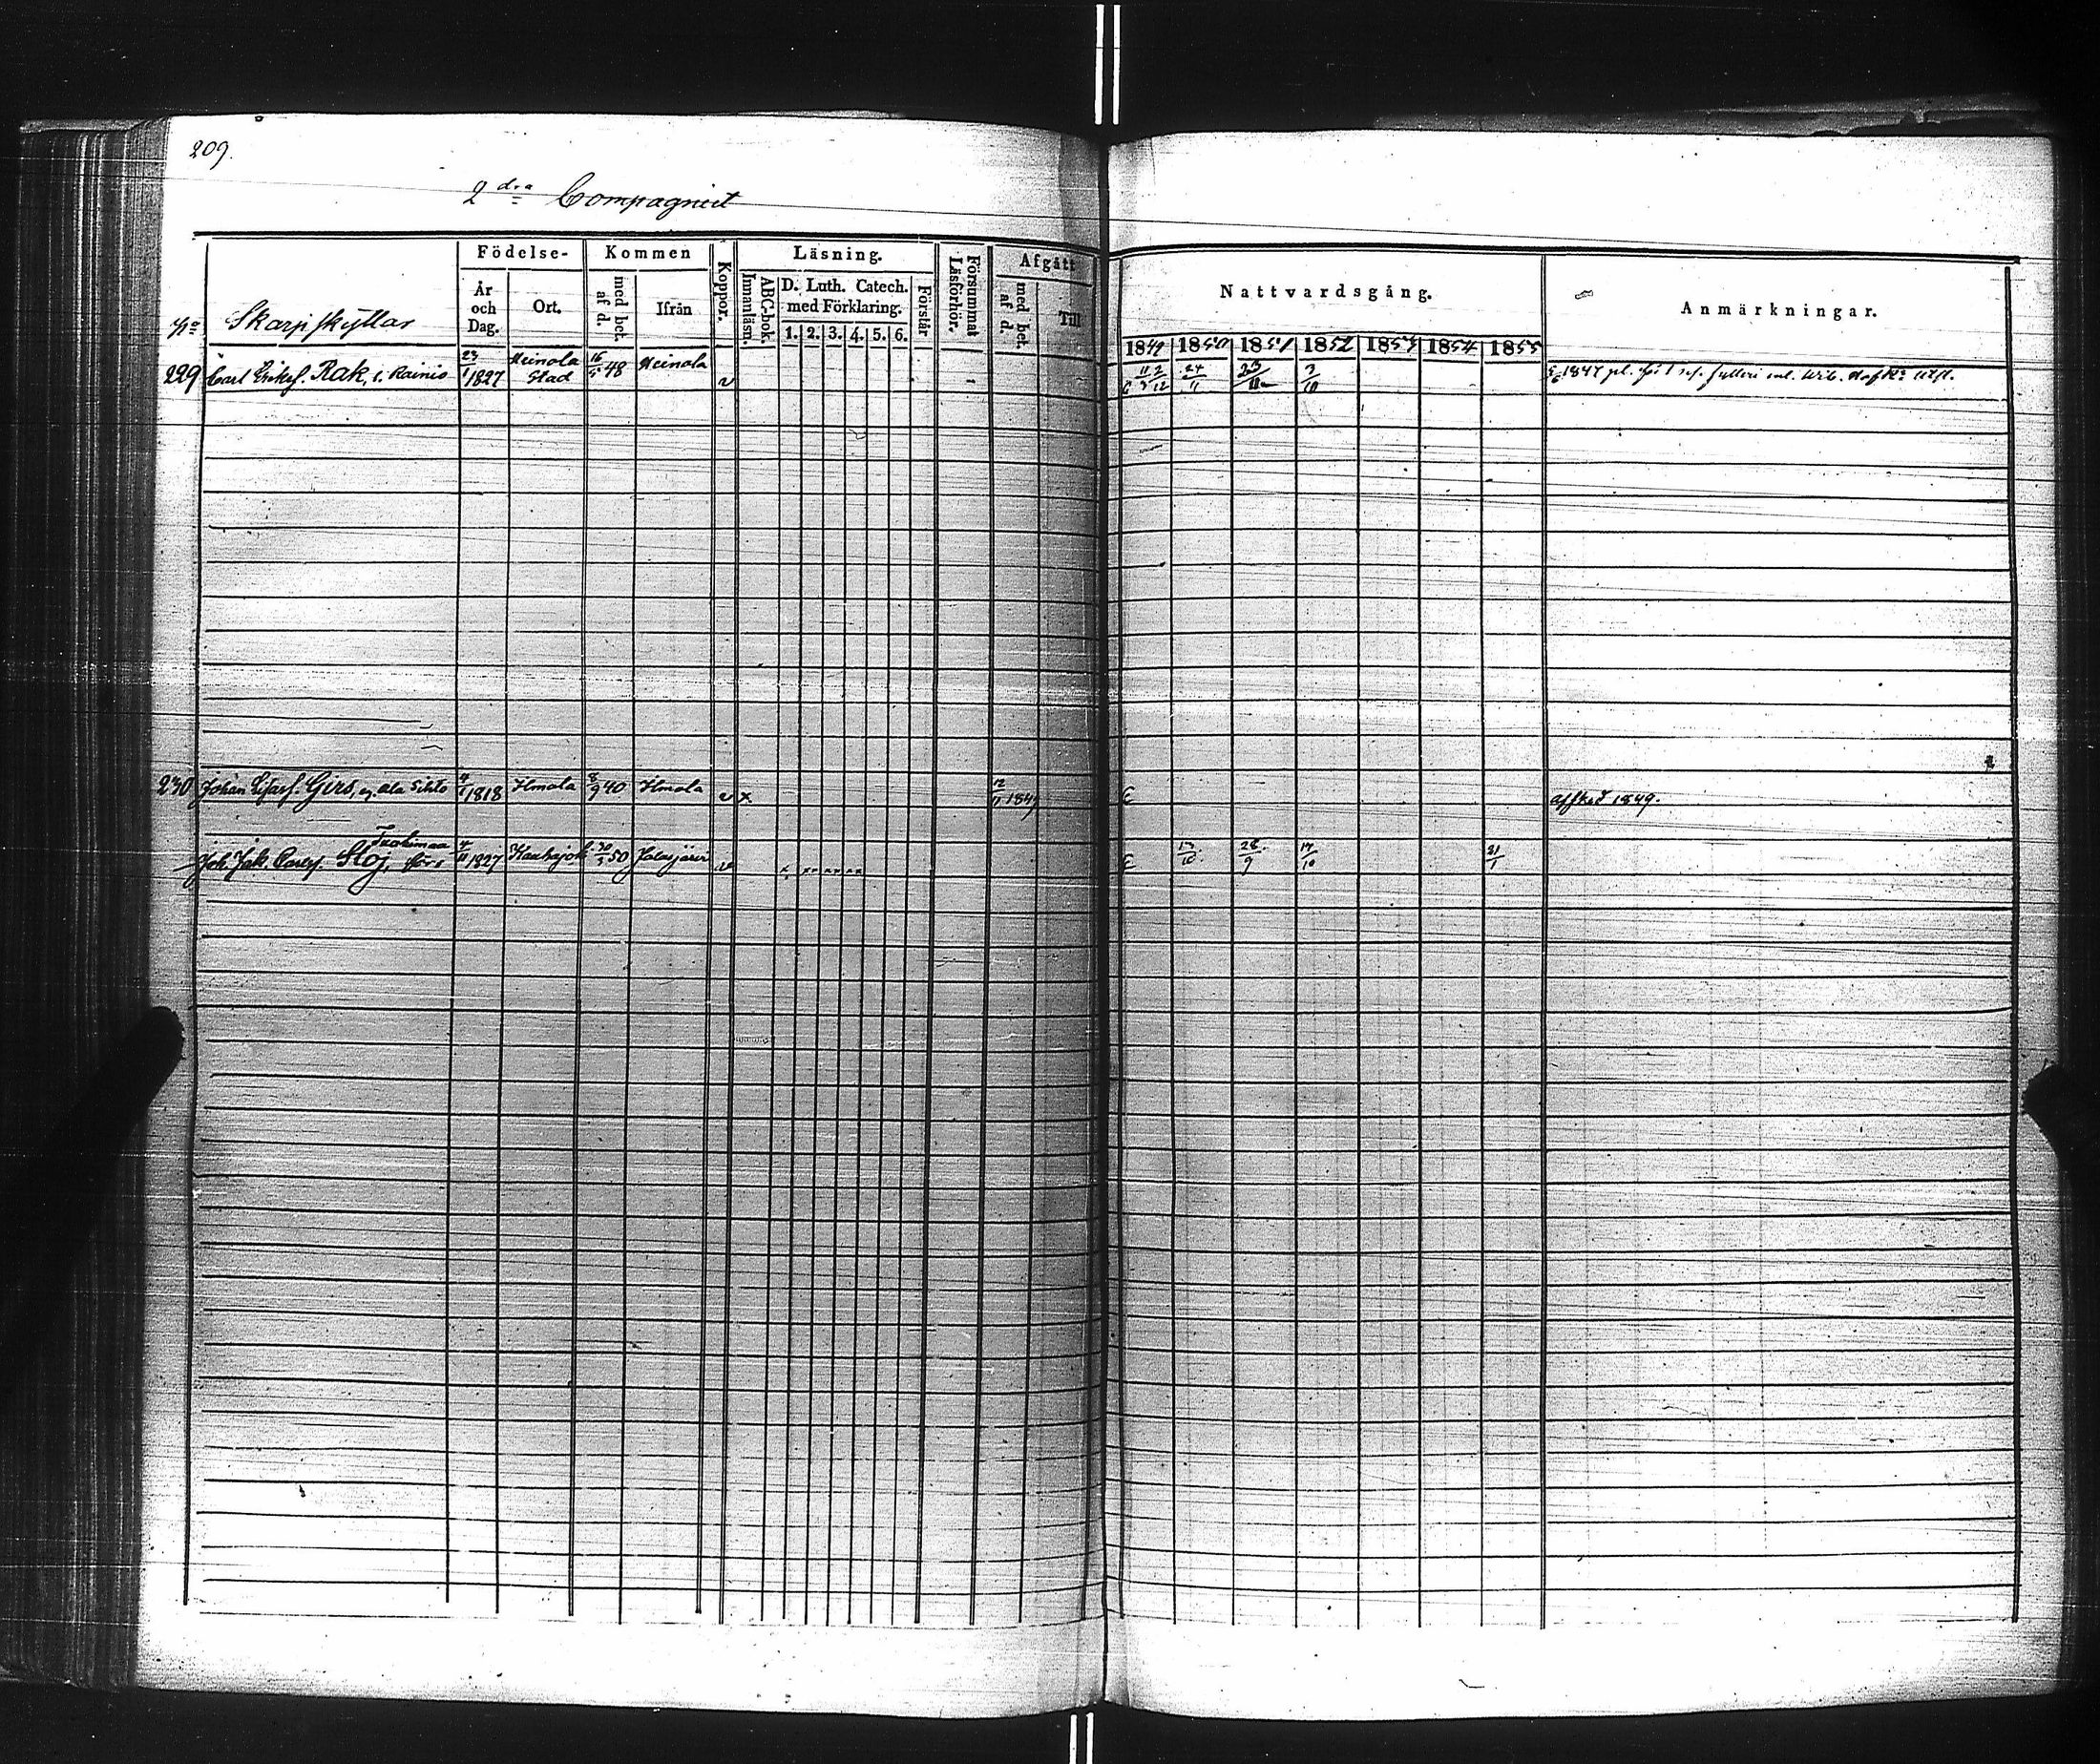 209.
2dra Compagniet
No
Skarpskyttar
Födelse-
År och Dag.
Ort.
Kommen
med bet. af d.
Ifrån
Koppor.
Läsning.
Innanläsn.
ABC-bok.
D. Luth. Catech. med Förklaring.
1. 2. 3. 4. 5. 6.
Förstår
Försummat Läsförhör.
Afgått
med bet. af d.
Till
Nattvardsgång.
1849 1850 1851 1852 1853 1854 1855
Anmärkningar.
229 Carl Eriksf. Rak, f. Rainio 23/1 1827 Heinola Stad 16/5 48 Heinola v 24/11 3/10
230 Johan 1818 Ilmola 8/9 40 Ilmola v x 12/11 1849 Afsked 1849.
Joh. Jak. Carlsf. Stoj, 1827 Kauhajok 50 Jalasjärvi v 28/9 14/10 21/1